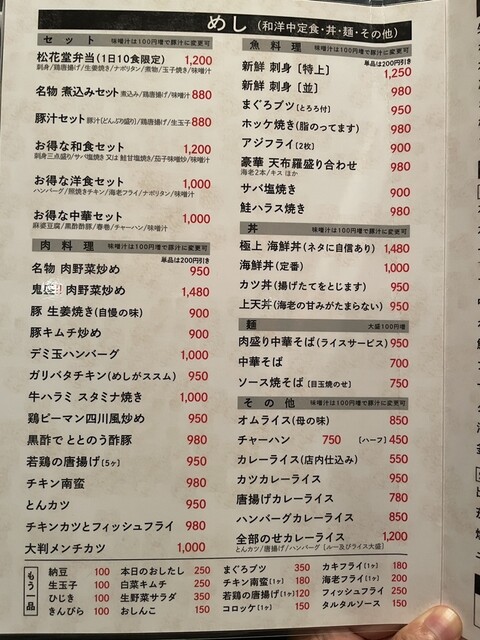 めし (和洋中定食・丼・麺・その他)
セット 味噌汁は100円増で豚汁に変更可
松花堂弁当(1日10食限定) 1,200
刺身/鶏唐揚げ/生姜焼き/ナポリタン/煮物/玉子焼き/味噌汁
名物 煮込みセット 煮込み/鶏唐揚げ/味噌汁 880
豚汁セット 豚汁(どんぶり盛り)/鶏唐揚げ/生玉子 880
お得な和食セット 1,200
刺身三点盛り/サバ塩焼き 又は 鮭甘塩焼き/茄子味噌炒め/味噌汁
お得な洋食セット 1,000
ハンバーグ/照焼きチキン/海老フライ/ナポリタン/味噌汁
お得な中華セット 1,000
麻婆豆腐/黒酢酢豚/春巻/チャーハン/味噌汁
肉料理 味噌汁は100円増で豚汁に変更可
単品は200円引き
名物 肉野菜炒め 950
肉野菜炒め 1,480
豚 生姜焼き(自慢の味) 900
豚キムチ炒め 900
デミ玉ハンバーグ 1,000
ガリバタチキン(めしがススム) 950
牛ハラミ スタミナ焼き 1,000
鶏ピーマン四川風炒め 950
黒酢で ととのう酢豚 980
若鶏の唐揚げ[5ヶ] 950
チキン南蛮 980
とんかつ 950
チキンカツとフィッシュフライ 980
大判メンチカツ 1,000
魚料理 味噌汁は100円増で豚汁に変更可
単品は200円引き
新鮮 刺身[特上] 1,250
新鮮 刺身[並] 980
まぐろブツ(とろろ付) 950
ホッケ焼き(脂のってます) 980
アジフライ[2枚] 900
豪華 天布羅盛り合わせ 980
海老2本/キス ほか
サバ塩焼き 900
鮭ハラス焼き 980
丼 味噌汁は100円増で豚汁に変更可
極上 海鮮丼(ネタに自信あり) 1,480
海鮮丼(定番) 1,000
カツ丼(揚げたてをとじます) 950
上天丼(海老の甘みがたまらない) 950
麺 大盛100円増
肉盛り中華そば(ライスサービス) 950
中華そば 700
ソース焼そば[目玉焼のせ] 750
その他 味噌汁は100円増で豚汁に変更可
オムライス(母の味) 850
チャーハン 750 [ハーフ] 450
カレーライス(店内仕込み) 550
カツカレーライス 950
唐揚げカレーライス 780
ハンバーグカレーライス 850
全部のせカレーライス 1,200
とんカツ/唐揚げ/ハンバーグ [ルー及びライス大盛]
もう一品
納豆 100 本日のおしたし 250 まぐろブツ 350 カキフライ(1ヶ) 180
生玉子 100 白菜キムチ 250 チキン南蛮(1ヶ) 180 海老フライ(1ヶ) 200
ひじき 100 生野菜サラダ 350 若鶏の唐揚げ(1ヶ) 120 フィッシュフライ 250
きんぴら 100 おしんこ 150 コロッケ(1ヶ) 150 タルタルソース 150